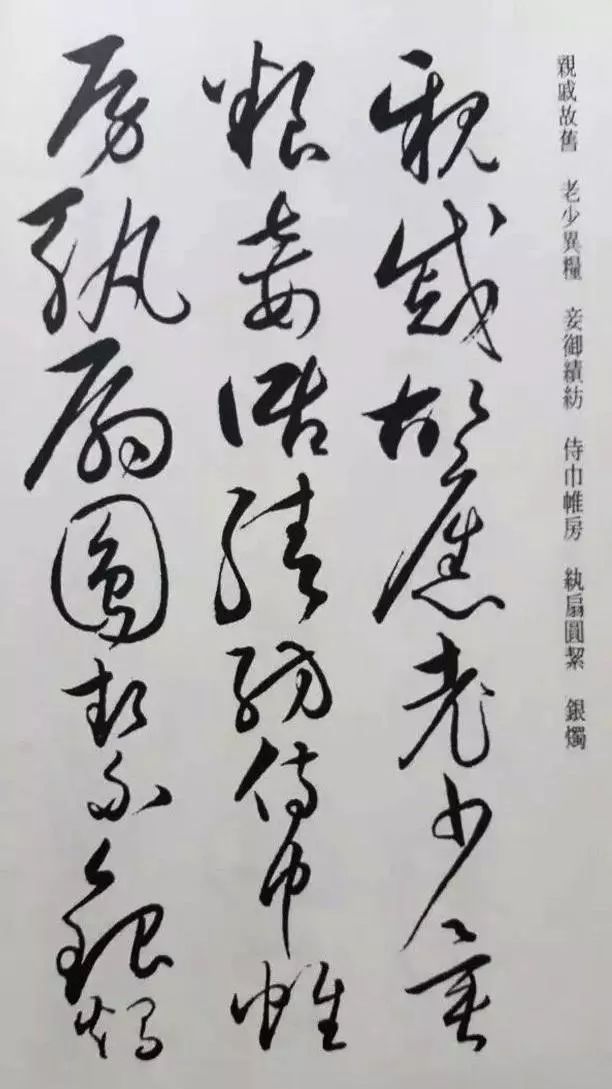 親戚故舊　老少異糧　妾御績紡　侍巾帷房　紈扇圓絜　銀燭
親戚故舊老少異
糧妾御績紡侍巾帷
房紈扇圓絜銀燭